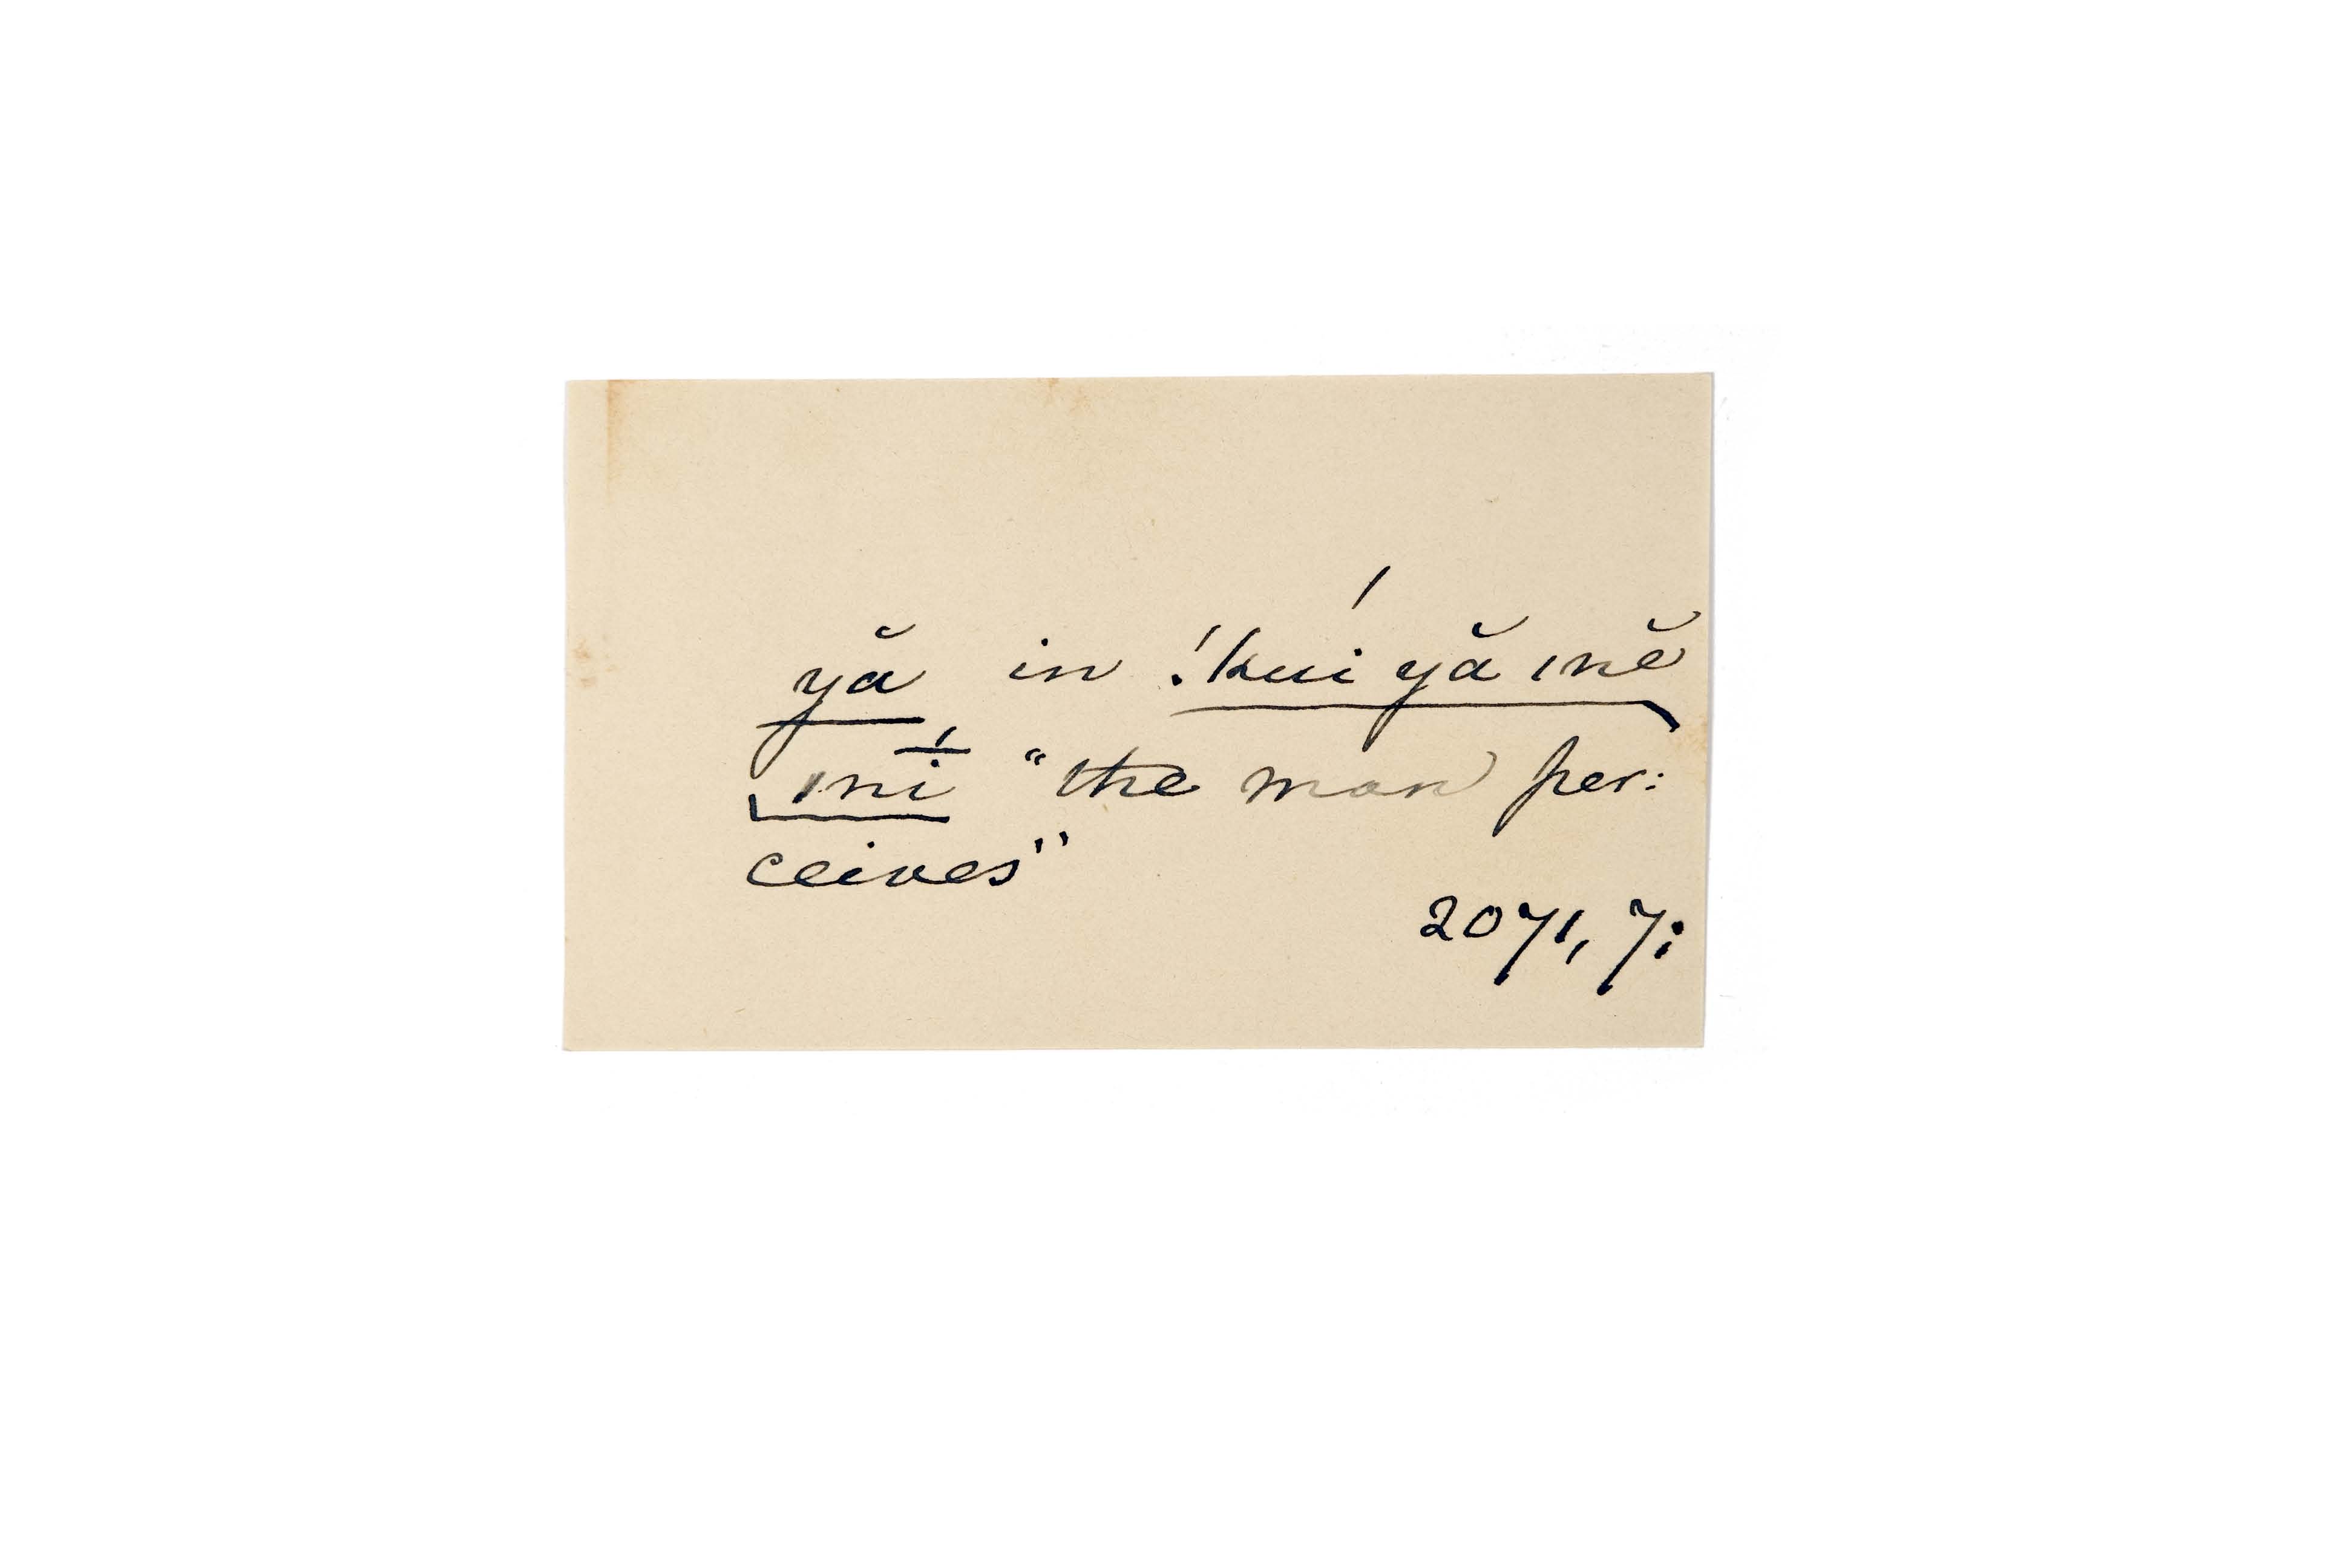 yă in !kuí yă ınĕ
ınī́ "the man per:
ceives"
2071, 7;